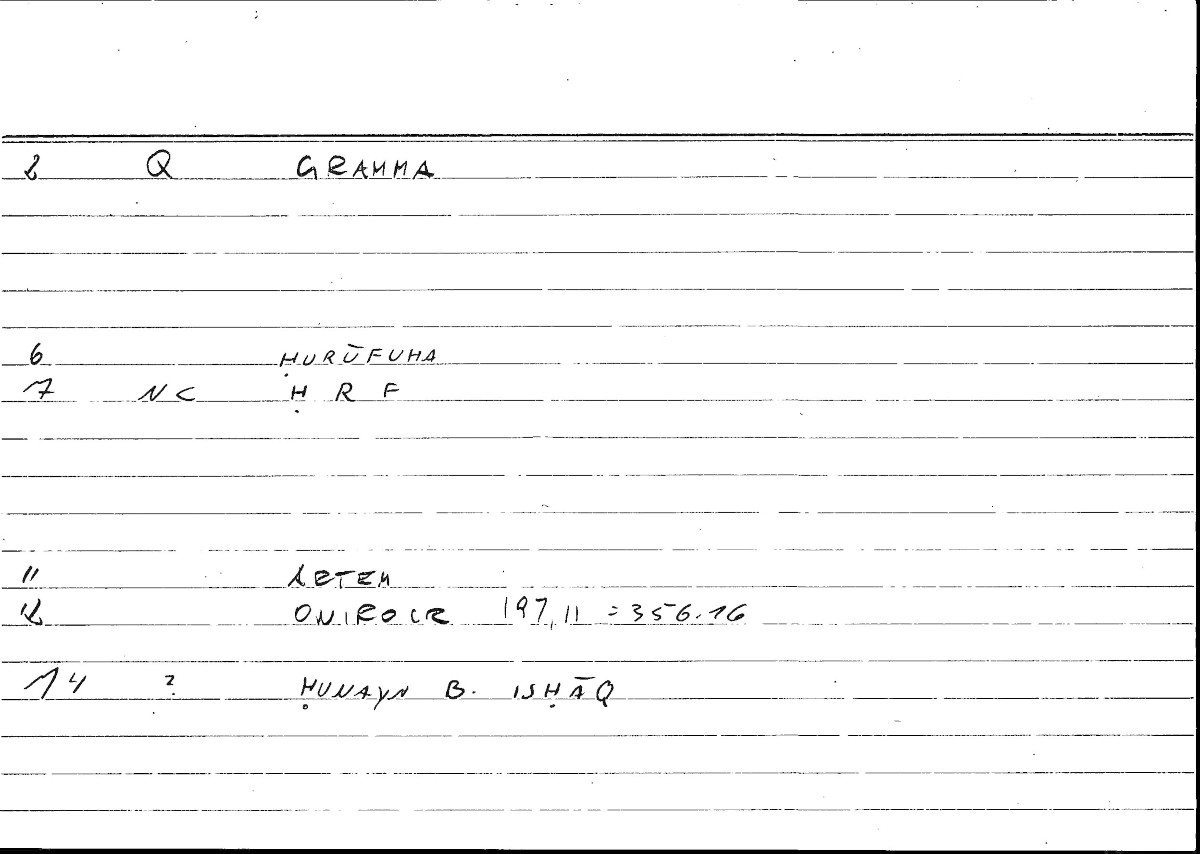 2 Q GRAMMA
6 ḤURŪFUHA
7 NC Ḥ R F
11 ARTEM
12 ONIROCR 197,11 = 356.16
14 ? ḤUNAYN B. ISḤĀQ